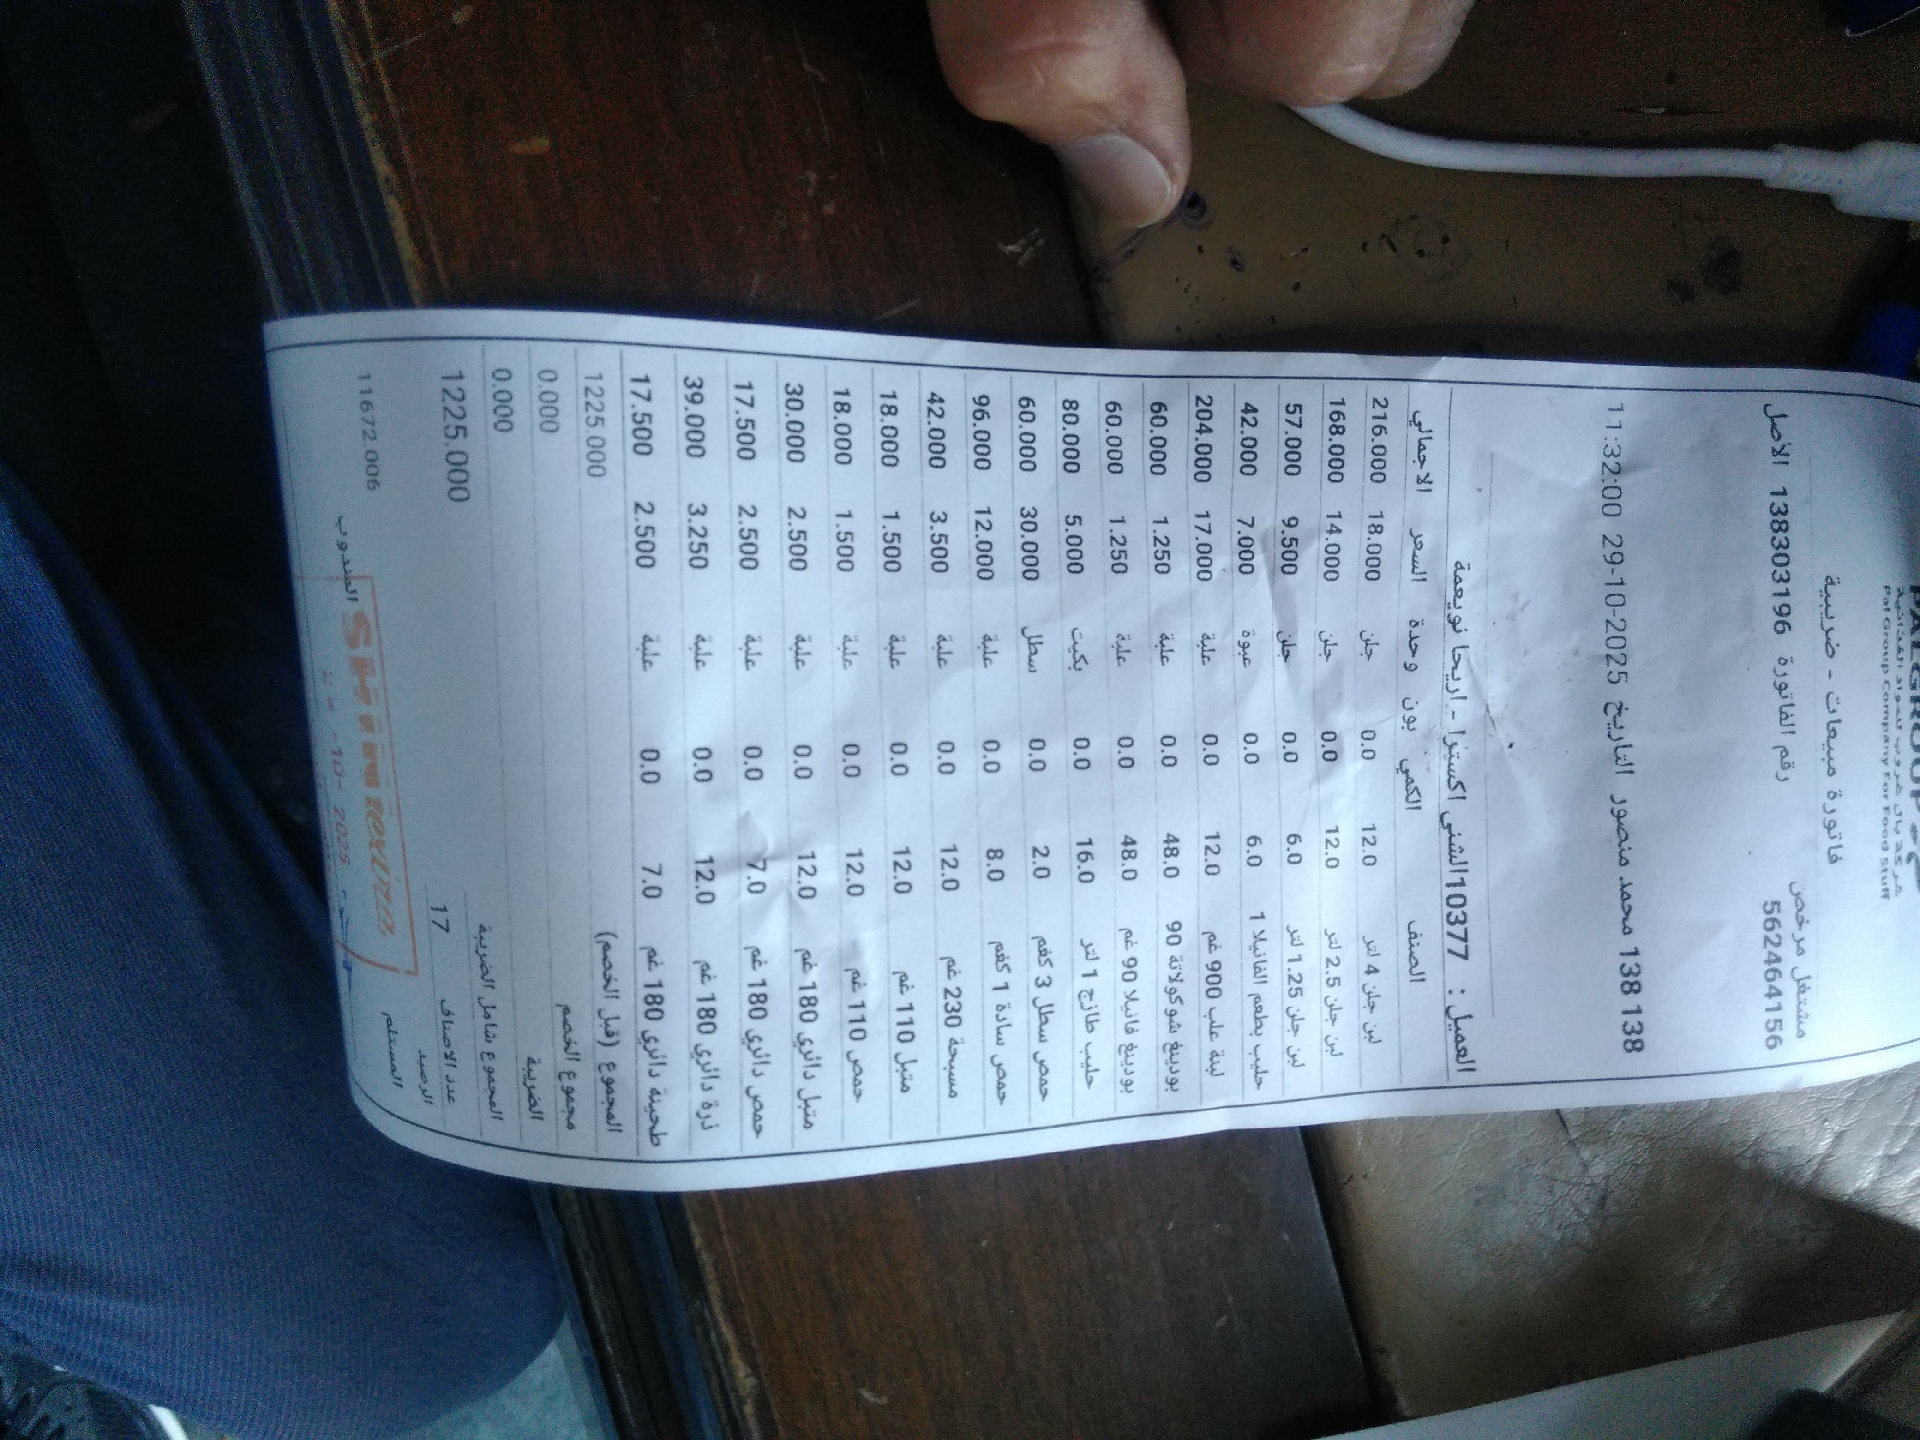 PALGROUP
شركة بال جروب للمواد الغذائية
Pal Group Company For Food Stuff
فاتورة مبيعات - ضريبية
مشتغل مرخص 562464156
رقم الفاتورة 138303196 الأصل
138 138 محمد منصور التاريخ 29-10-2025 11:32:00
العميل : 10377الشني اكسترا - اريحا نويعمة
الصنف الكمي بون وحدة السعر الاجمالي
لبن جلن 4 لتر 12.0 0.0 جلن 18.000 216.000
لبن جلن 2.5 لتر 12.0 0.0 جلن 14.000 168.000
لبن جلن 1.25 لتر 6.0 0.0 جلن 9.500 57.000
حليب بطعم الفانيلا 1 6.0 0.0 عبوة 7.000 42.000
لبنة علب 900 غم 12.0 0.0 علبة 17.000 204.000
بودينغ شوكولاتة 90 48.0 0.0 علبة 1.250 60.000
بودينغ فانيلا 90 غم 48.0 0.0 علبة 1.250 60.000
حليب طازج 1 لتر 16.0 0.0 بكيت 5.000 80.000
حمص سطل 3 كغم 2.0 0.0 سطل 30.000 60.000
حمص سادة 1 كغم 8.0 0.0 علبة 12.000 96.000
مسبحة 230 غم 12.0 0.0 علبة 3.500 42.000
متبل 110 غم 12.0 0.0 علبة 1.500 18.000
حمص 110 غم 12.0 0.0 علبة 1.500 18.000
متبل دائري 180 غم 12.0 0.0 علبة 2.500 30.000
حمص دائري 180 غم 7.0 0.0 علبة 2.500 17.500
ذرة دائري 180 غم 12.0 0.0 علبة 3.250 39.000
طحينة دائري 180 غم 7.0 0.0 علبة 2.500 17.500
المجموع (قبل الخصم) 1225.000
مجموع الخصم 0.000
الضريبة 0.000
المجموع شامل الضريبة 1225.000
عدد الاصناف 17
الرصيد 11672.006
المستلم المندوب
SHINI extra
-10- 2025